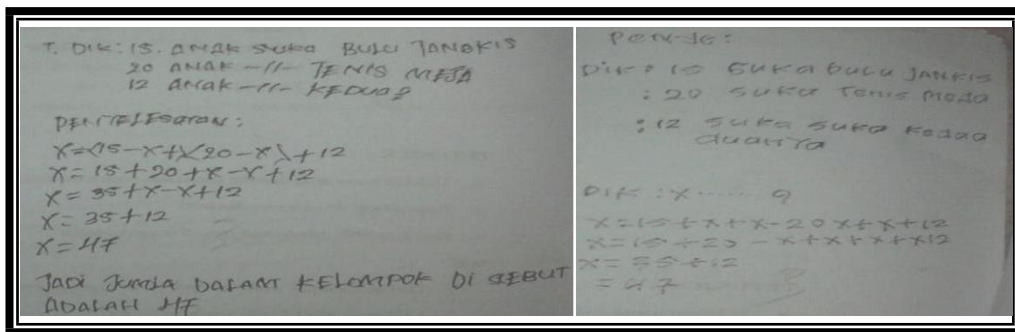 7. DIK: 15. ANAK SUKA BULU TANGKIS
20 ANAK -//- TENIS MEJA
12 ANAK -//- KEDUA2
PENYELESAIAN:
X=(15-X+)(20-X)+12
X=15+20+X-X+12
X=35+X-X+12
X=35+12
X=47
JADI JUMLA DALAM KELOMPOK DI SEBUT
ADALAH 47
Penye:
Dik: 15 SUKA BULU JANGKIS
: 20 SUKA Tenis meja
: 12 SUKA SUKA Kedua
duanya
DIK : X ......
X=15+X+X-20X+X+12
X=15+20-X+X+X+X12
X=35+12
= 47